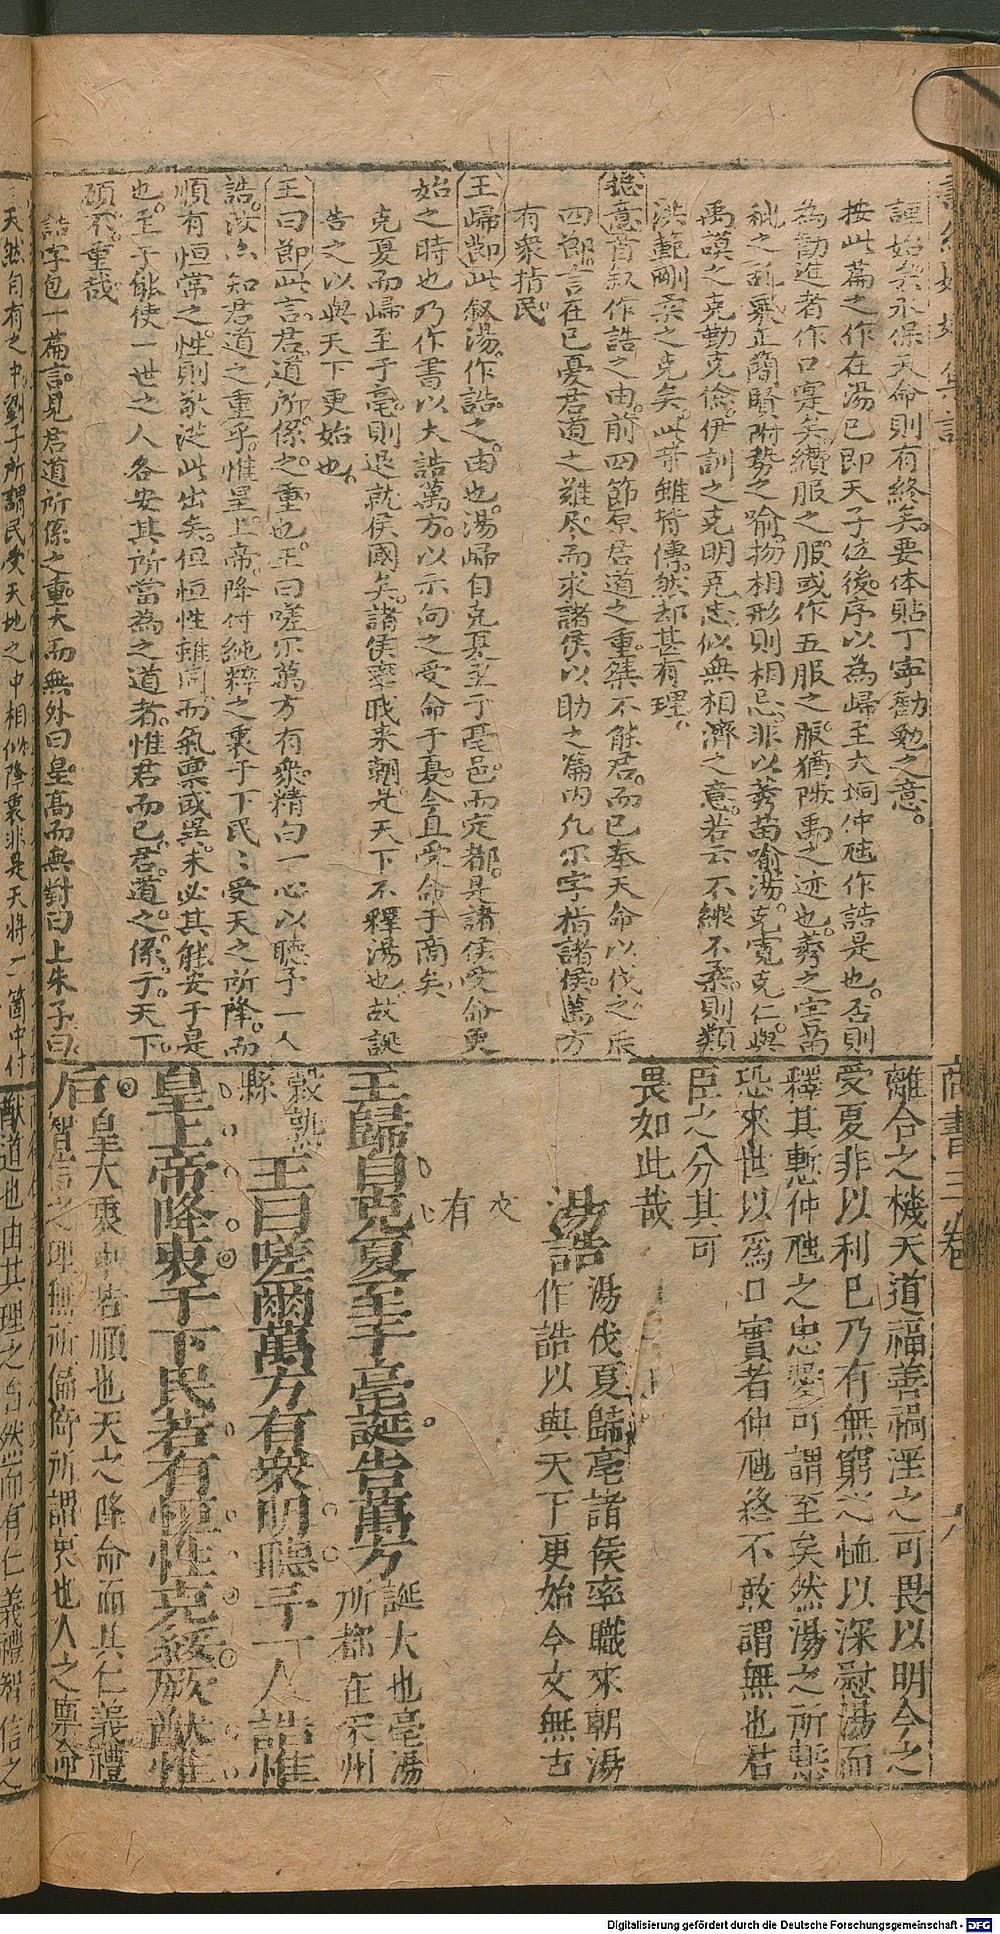 謹始矣永保天命則有終矣要体貼丁寧勸勉之意
按此篇之作在湯已即天子位後序以為歸至大坰仲虺作誥是也否則
為勸進者作口實矣纘服之服或作五服之服猶陟禹之迹也莠之害苗
秕之乱粟正簡賢附勢之喻物相形則相忌非以莠苗喻湯克寬克仁與
禹謨之克勤克儉伊訓之克明克忠似無相濟之意若云不縱不柔則類
洪範剛柔之克矣此等雖背傳然却甚有理
揔意首叙作誥之由前四節原君道之重桀不能君而已奉天命以伐之后
四節言在已憂君道之難尽而求諸侯以助之篇内凡尔字指諸侯萬方
有衆指民
王歸節此叙湯作誥之由也湯歸自克夏至于亳邑而定都是諸侯受命更
始之時也乃作書以大誥萬方以示向之受命于夏今且受命于商矣
克夏而歸至于亳則退就侯國矣諸侯率職来朝是天下不釋湯也故誕
告之以與天下更始也
王曰節此言君道所係之重也王曰嗟尔萬方有衆精白一心以聽予一人
誥汝亦知君道之重乎惟皇上帝降付純粹之衷于下民民受天之所降而
順有恒常之性則猷從此出矣但恒性雖同而氣禀或異未必其能安于是
也至于能使一世之人各安其所當為之道者惟君而已君道之係于天下
顧不重哉
誥字包一篇言見君道所係之重大而無外曰皇高而無對曰上朱子曰
天然自有之中劉子所謂民受天地之中相似降衷非是天將一箇中付
尚書三卷
離合之機天道福善禍淫之可畏以明今之
受夏非以利已乃有無窮之恤以深慰湯而
釋其慙仲虺之忠愛可謂至矣然湯之所慙
恐來世以爲口實者仲虺終不敢謂無也君
臣之分其可
畏如此哉
湯誥
湯伐夏歸亳諸侯率職來朝湯
作誥以與天下更始今文無古
文
有
王歸自克夏至于亳誕告萬方
誕大也亳湯
所都在宋州
穀熟
縣
王曰嗟爾萬方有衆明聽予一人誥惟
皇上帝降衷于下民若有恒性克綏厥猷惟
后
皇大衷中若順也天之降命而具仁義禮
智信之理無所偏倚所謂衷也人之禀命
猷道也由其理之自然而有仁義禮智信之
Digitalisierung gefördert durch die Deutsche Forschungsgemeinschaft - DFG